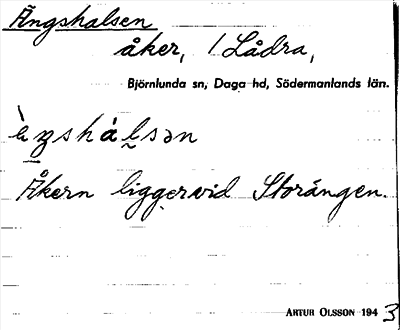 Ängshalsen
åker, 1 Lådra,
Björnlunda sn, Daga hd, Södermanlands län.
Åkern ligger vid Storängen.
ARTUR OLSSON 1943